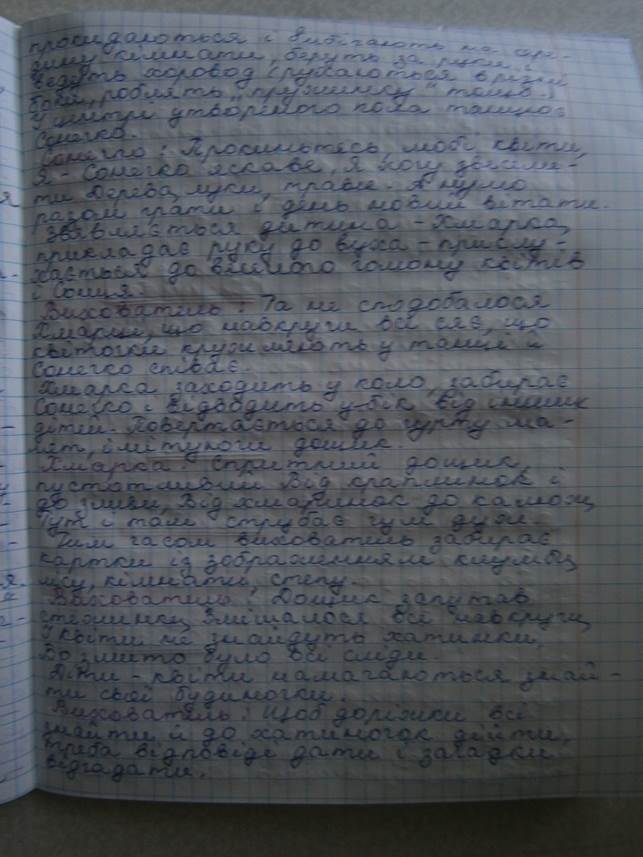 прокидаються і вибігають на сере-
дину кімнати, беруть за руки і
ведуть хоровод (рухаються в різні
боки, роблять "пружинку" тощо).
У центрі утвореного кола танцює
Сонечко.
Сонечко: Прокиньтесь, любі квіти,
Я - Сонечко яскаве, я хочу звесели-
ти Дерева, луки, трави. А нумо
разом грати і день новий вітати.
Зявляється дитина - Хмарка,
прикладає руку до вуха - прислу-
хається до веселого гомону квітів
і Сонця.
Вихователь: Та не сподобалося
Хмарці, що навкруги всі сяє, що
квіточки кружляють у танці й
Сонечко співає.
Хмарка заходить у коло, забирає
Сонечко і відводить у бік від інших
дітей. Повертається до гурту ма-
лят, імітуючи дощик.
Хмарка: Спритний дощик,
пустотливий Від краплинок і
до зливи, Від хмаринок до калюж,
Тут і там стрибає дуж.
Тим часом вихователь забирає
картки із зображенням клумби,
лісу, кімнати, степу.
Вихователь: Дощик заплутав
стежинки, Змішалося все навкруги,
І квіти не знайдуть хатинки,
Бо змито було всі сліди.
Діти - квіти намагаються знай-
ти свої будиночки.
Вихователь: Щоб доріжки всі
знайти й до хатиночок дійти,
треба відповіді дати і загадки
відгадати.